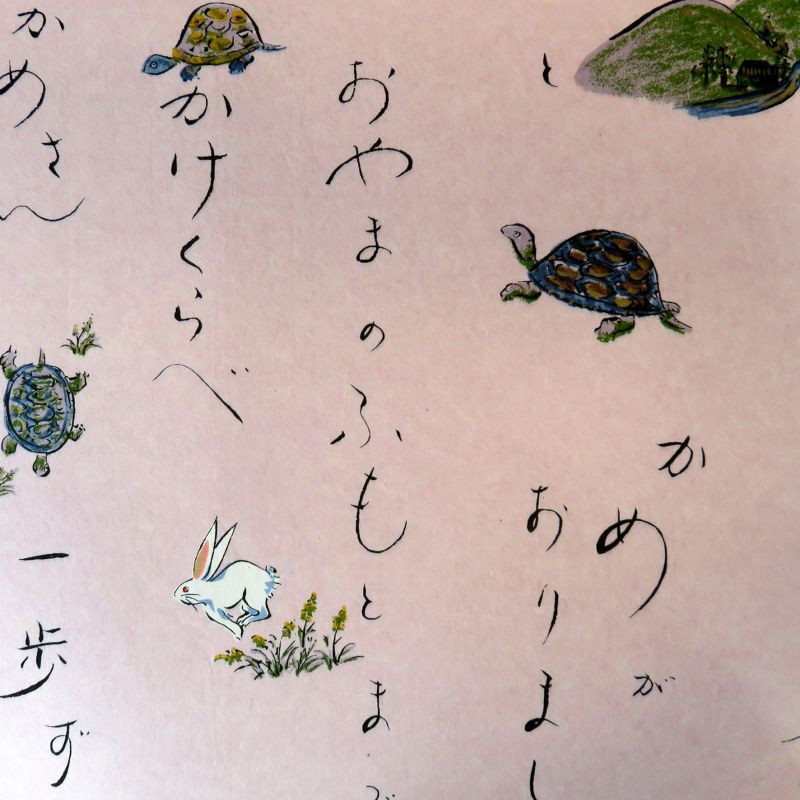 かめが
と おりまし
おやまのふもとまで
かけくらべ
かめさん 一歩ず